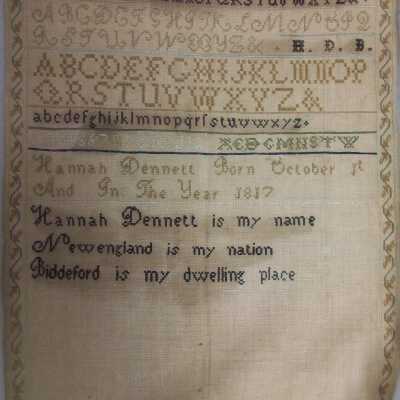 ABCDEFGHIJKLMNOPQ
RSTUVWXYZ& H. D. B.
ABCDEFGHIJKLMNOP
QRSTUVWXYZ&
abcdefghijklmnopqrſstuvwxyz.
Hannah Dennett Born October 1st
And In The Year 1817
Hannah Dennett is my name
Newengland is my nation
Biddeford is my dwelling place